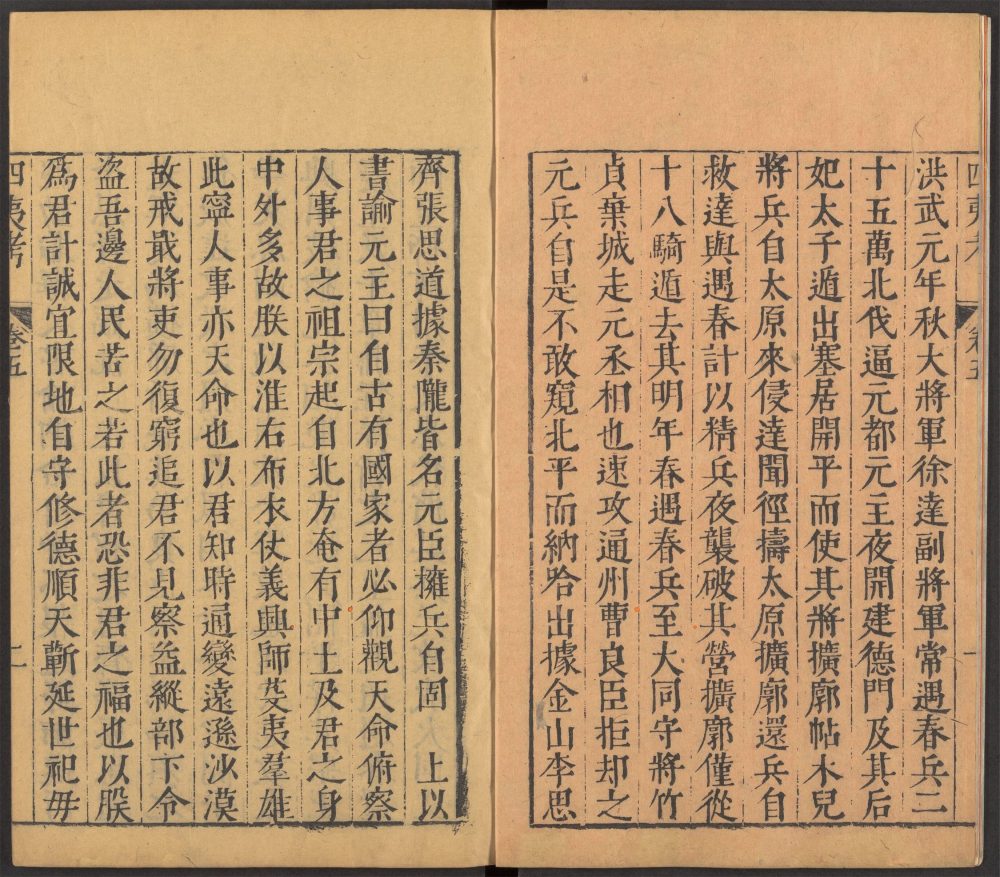 四夷考 卷五 一
洪武元年秋大將軍徐達副將軍常遇春兵二
十五萬北伐逼元都元主夜開建德門及其后
妃太子遁出塞居開平而使其將擴廓帖木兒
將兵自太原來侵達聞徑擣太原擴廓還兵自
救達與遇春計以精兵夜襲破其營擴廓僅從
十八騎遁去其明年春遇春兵至大同守將竹
貞棄城走元丞相也速攻通州曹良臣拒却之
元兵自是不敢窺北平而納哈出據金山李思
齊張思道據秦隴皆名元臣擁兵自固　上以
書諭元主曰自古有國家者必仰觀天命俯察
人事君之祖宗起自北方奄有中土及君之身
中外多故朕以淮右布衣仗義興師芟夷羣雄
此寧人事亦天命也以君知時通變遠遜沙漠
故戒戢將吏勿復窮追君不見察益縱部下令
盜吾邊人民苦之若此者恐非君之福也以朕
爲君計誠宜限地自守修德順天蘄延世祀毋
四夷考 卷五 二